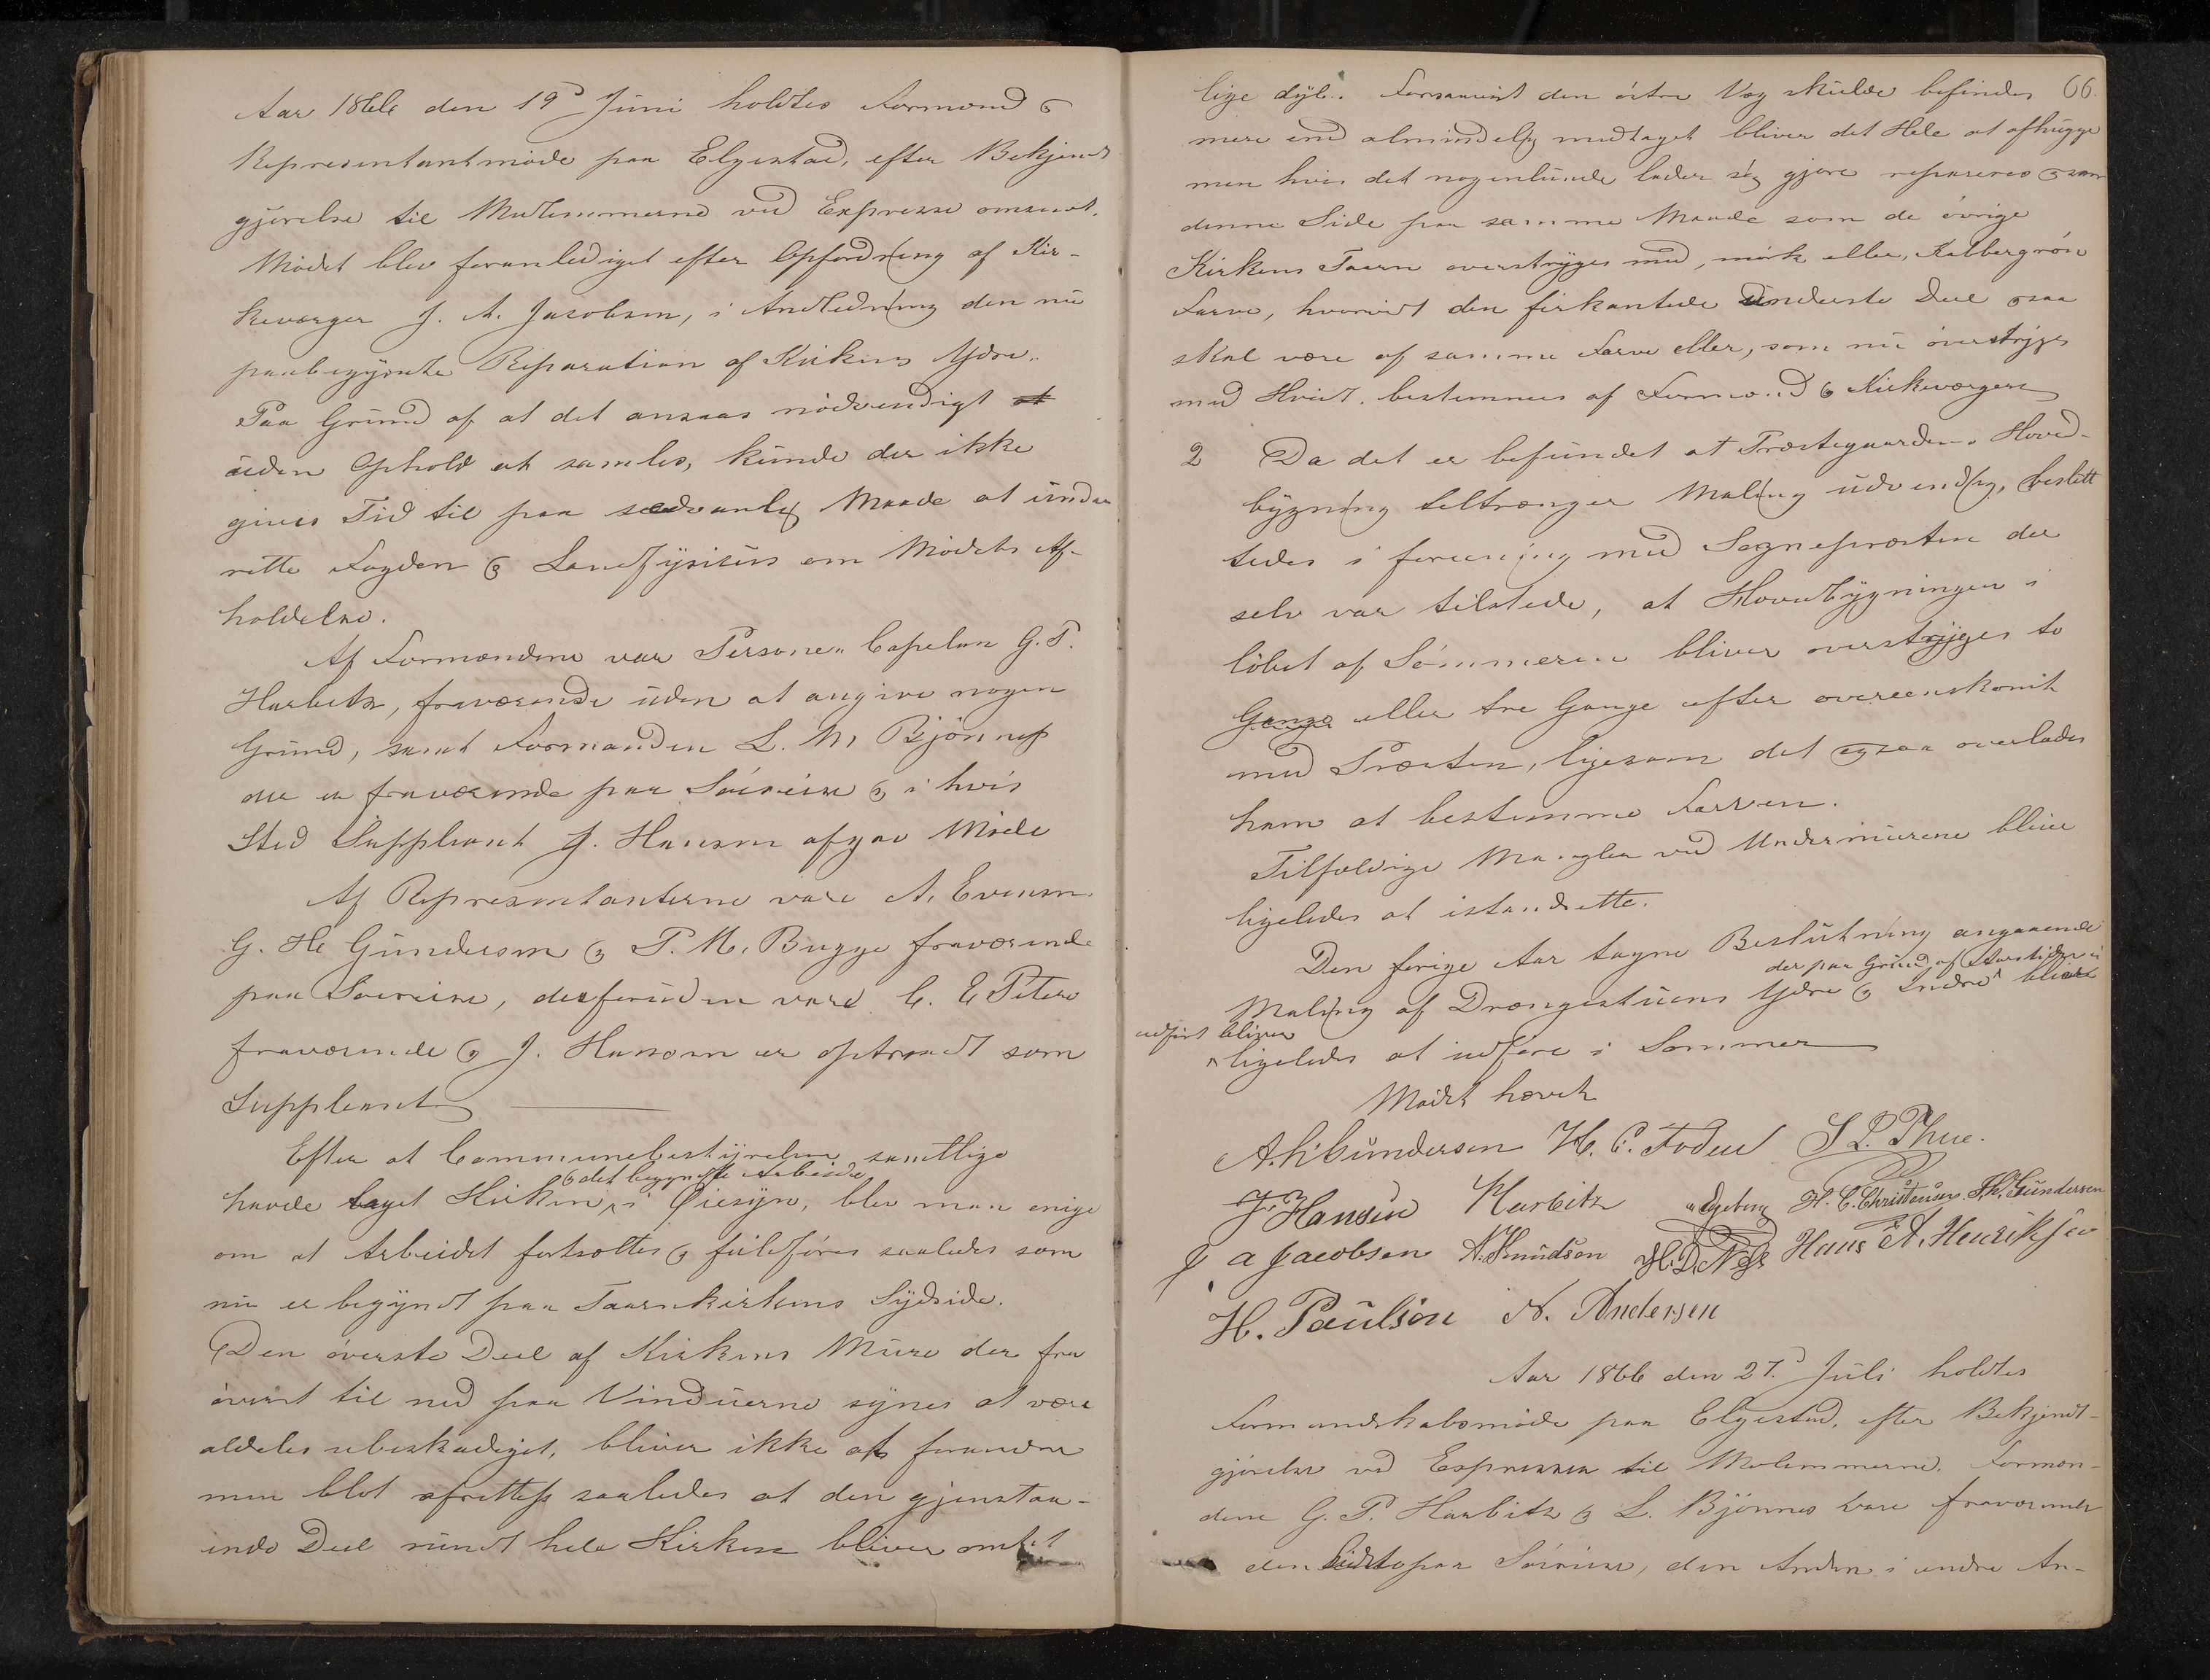 Aar 1866 den 19d Juni holdtes Formænd &
Repræsentantmøde paa Elgestad, efter Bekjendt
gjørelse til Medlemmerne ved Expresse omsendt.
Mødet blev foranlediget efter Opfordring af Kir-
keværger J. A. Jacobsen, i Anledning den nu
paabegyndte Reparation af Kirkens Ydre.
Paa Grund af at det ansaas nødvendigt at
uden Ophold at samles, kunde der ikke
gives Tid til paa sædvanlig Maade at under
rette Fogden & Landfysikus om Mødets Af-
holdelse.
Af Formændene var Personel Capelan G. P.
Harbitz, fraværende uden at angive nogen
Grund, samt Formanden L. M. Bjönnes
der er fraværende paa Søreise & i hvis
Sted Suppleant J. Hansen afgav Møde
Af Repræsentanterne vare A. Evensen
G. H. Gundersen & P. M. Bugge fraværende
paa Søreise, desforuden vare C. E. Peters
fraværende & J. Hansen er optraadt som
Suppleant
Efter at Communebestyrelsen samtlige
& det begyndte Arbeide
havde taget Kirken i Øiesyn, blev man enige
om at Arbeidet fortsættes & fuldføres saaledes som
nu er begyndt paa Taarnkirkens Sydside.
Den øverste Deel af Kirkens Mure der fra
øverst til ned paa Vinduerne synes at være
aldeles ubeskadiget, bliver ikke at forandre
men blot afrettes saaledes at den gjenstaa-
ende Deel rundt hele Kirken bliver omtrent
lige dyb. Forsaavidt den østre Væg skulde befindes 66.
mere end almindelig medtaget bliver det Hele at afhugge
men hvis det nogenlunde lader sig gjøre repareres ogsaa
denne Side paa samme Maade som de øvrige
Kirkens Taarn overstryges med, mørk eller,
Farve, hvorvidt den firkantede underste Deel ogsaa
skal være af samme Farve eller, som nu overstryges
med Hvidt. bestemmes af Formænd & Kirkeværgere
2 Da det er befundet at Præstegaardens Hoved-
bygning tiltrænger Maling udvendig, beslut
tedes i forening med Sognepræsten der
selv var tilstede, at Hovedbygningen i
løbet af Sommeren bliver overstryges to
Gange eller tre Gange efter overeenskomst
med Præsten, ligesom det ogsaa overlades
ham at bestemme Farven.
Tilfældige Mangler ved Undermurene bliver
ligeledes at istandsætte.
Den forige Aar tagne Beslutning angaaende
der paa Grund af Aarstiden ei
Maling af Drængestuens Ydre & Indre blive
udført bliver
ligeledes at udføre i Sommer
Mødet hævet
A. H. Gundersen H. C. Foden S L. Thue.
J. Hansen Harbitz H. C. Christensen. Th. Gundersen
J a Jacobsen A. Knudsen H. D. Næss Hans A. Henriksen
H. Paulson N. Andersen
Aar 1866 den 27. Juli holdtes
Formandskabsmøde paa Elgestad, efter Bekjendt-
gjørelse ved Expressen til Medlemmerne. Formæn-
dene G. P. Harbitz & L. Bjønnes vare fraværende
den Sidste paa Søreise, den Anden i andre An-